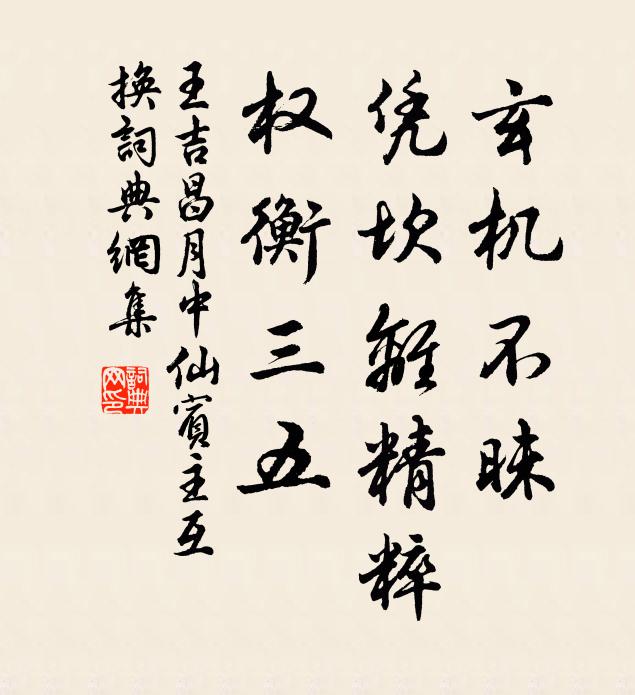 玄机不昧
凭坎離精粹
权衡三五
王吉昌月中仙賓主互
換詞典網集
詞典網印